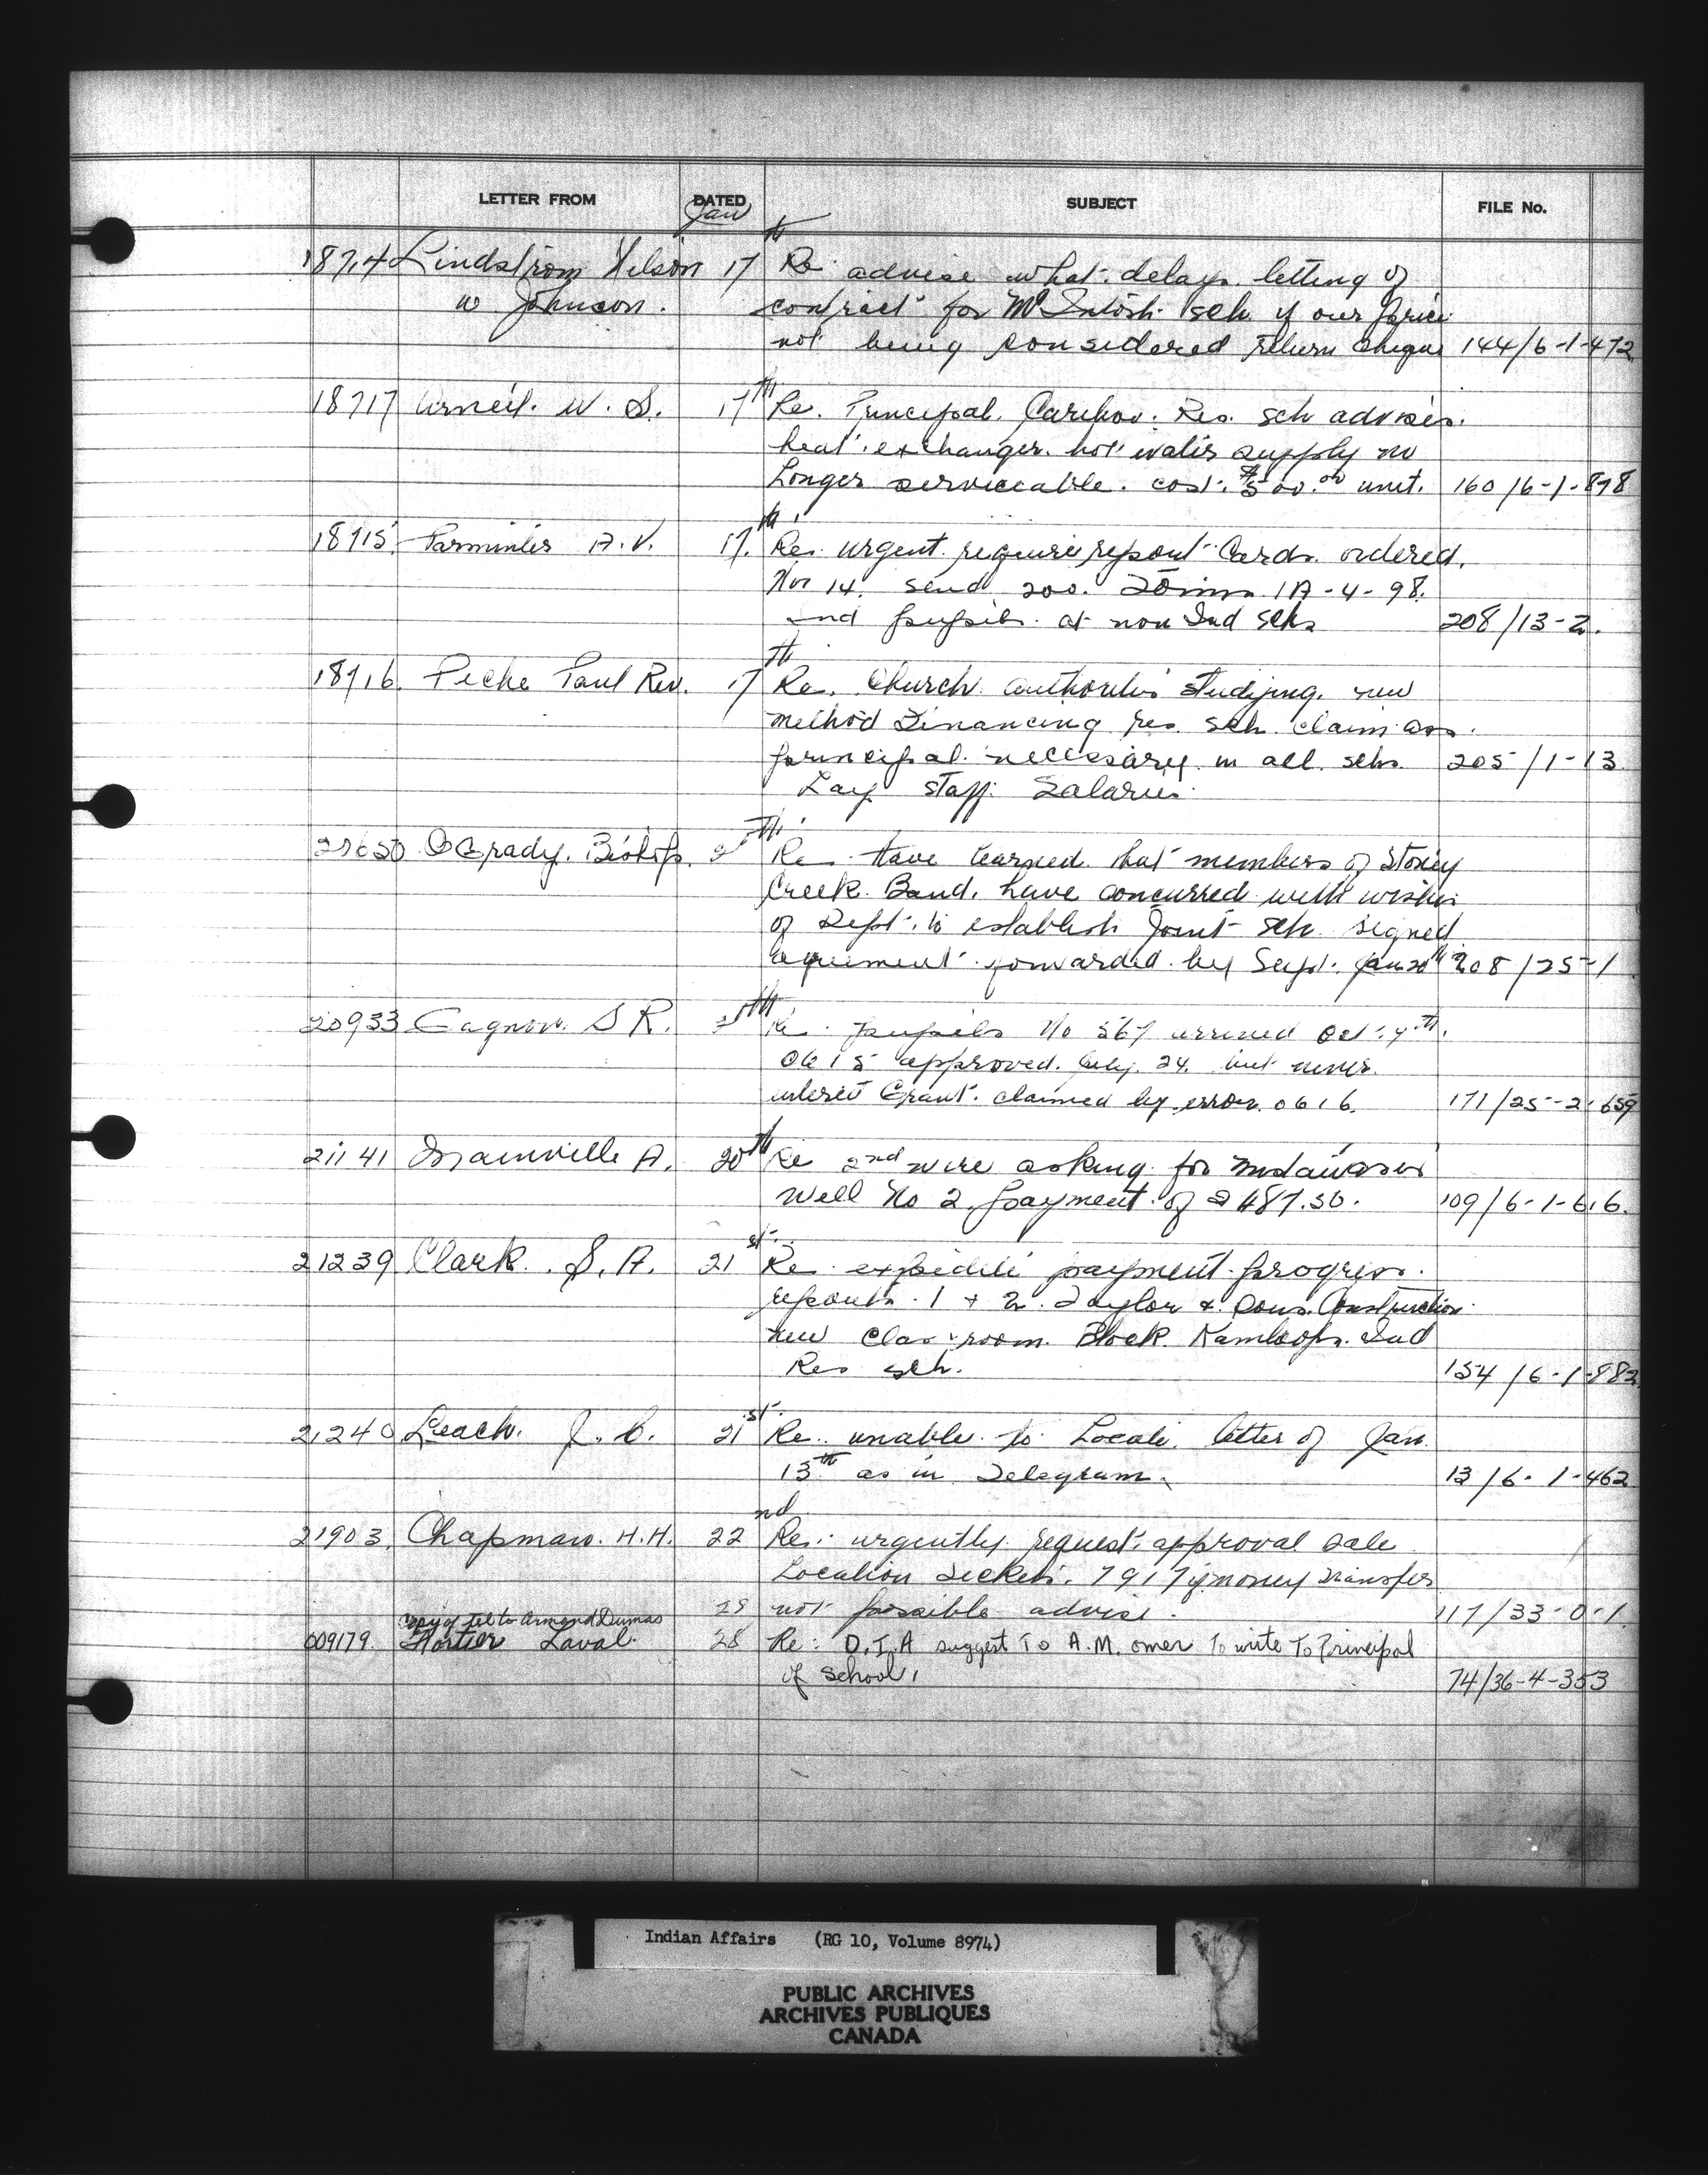 LETTER FROM DATED SUBJECT FILE No.
Jan
18714 Lindstrom Nelson 17th Re advise what delays letting of
w Johnson. contract for McIntosh sch if our price
not being considered return cheque 144/6-1-472
18717 Arneil. W. S. 17th Re. Principal. Cariboo. Res. sch advises.
heat exchanger. hot water supply no
Longer serviceable. cost. $500.00 unit. 160/6-1-878
18715 Parminter A. V. 17th Re. urgent require report Cards. ordered.
Nov 14. send 200. Forms 1A-4-98.
Ind pupils at non Ind schs 208/13-2.
18716. Piche Paul Rev. 17th Re. Church authorities studying. new
method Financing res. sch. claim ass.
principal necessary in all. schs. 205/1-13
Lay staff. Salaries.
O Grady. Bishop. th Re have learned that members of Stoney
Creek. Band. have concurred with wishes
of Dept. to establish Joint sch signed
agreement forwarded by Supt. Jan 20th 208/25-1
20933 Gagnon. S R. th Re. pupils No 567 arrived Oct. 4th.
0615 approved. July. 24. but never
entered Grant. claimed by error. 0616. 171/25-2-659
21141 Mainville A. 20th Re 2nd wire asking for
Well No 2 payment of $487.50. 109/6-1-616.
21239 Clark. S. A. 21st Re expedite payment progress.
reports. 1 + 2. Taylor & Sons. Construction
new class room. Block. Kamloops. Ind
Res sch. 154/6-1-882
21240 Leach. J. 21st Re. unable to Locate. letter of Jan.
13th as in Telegram. 13/6-1-462
21903. Chapman. H.H. 22nd Re. urgently request approval sale
Location Tickets. 7917 if money transfer
29 not possible advise. 117/33-0-1
Copy of tel to Armand Dumas
009179. Fortier Laval. 28 Re: D.I.A suggest To A.M. omer To write To Principal
of school. 74/36-4-353
Indian Affairs (RG 10, Volume 8974)
PUBLIC ARCHIVES
ARCHIVES PUBLIQUES
CANADA